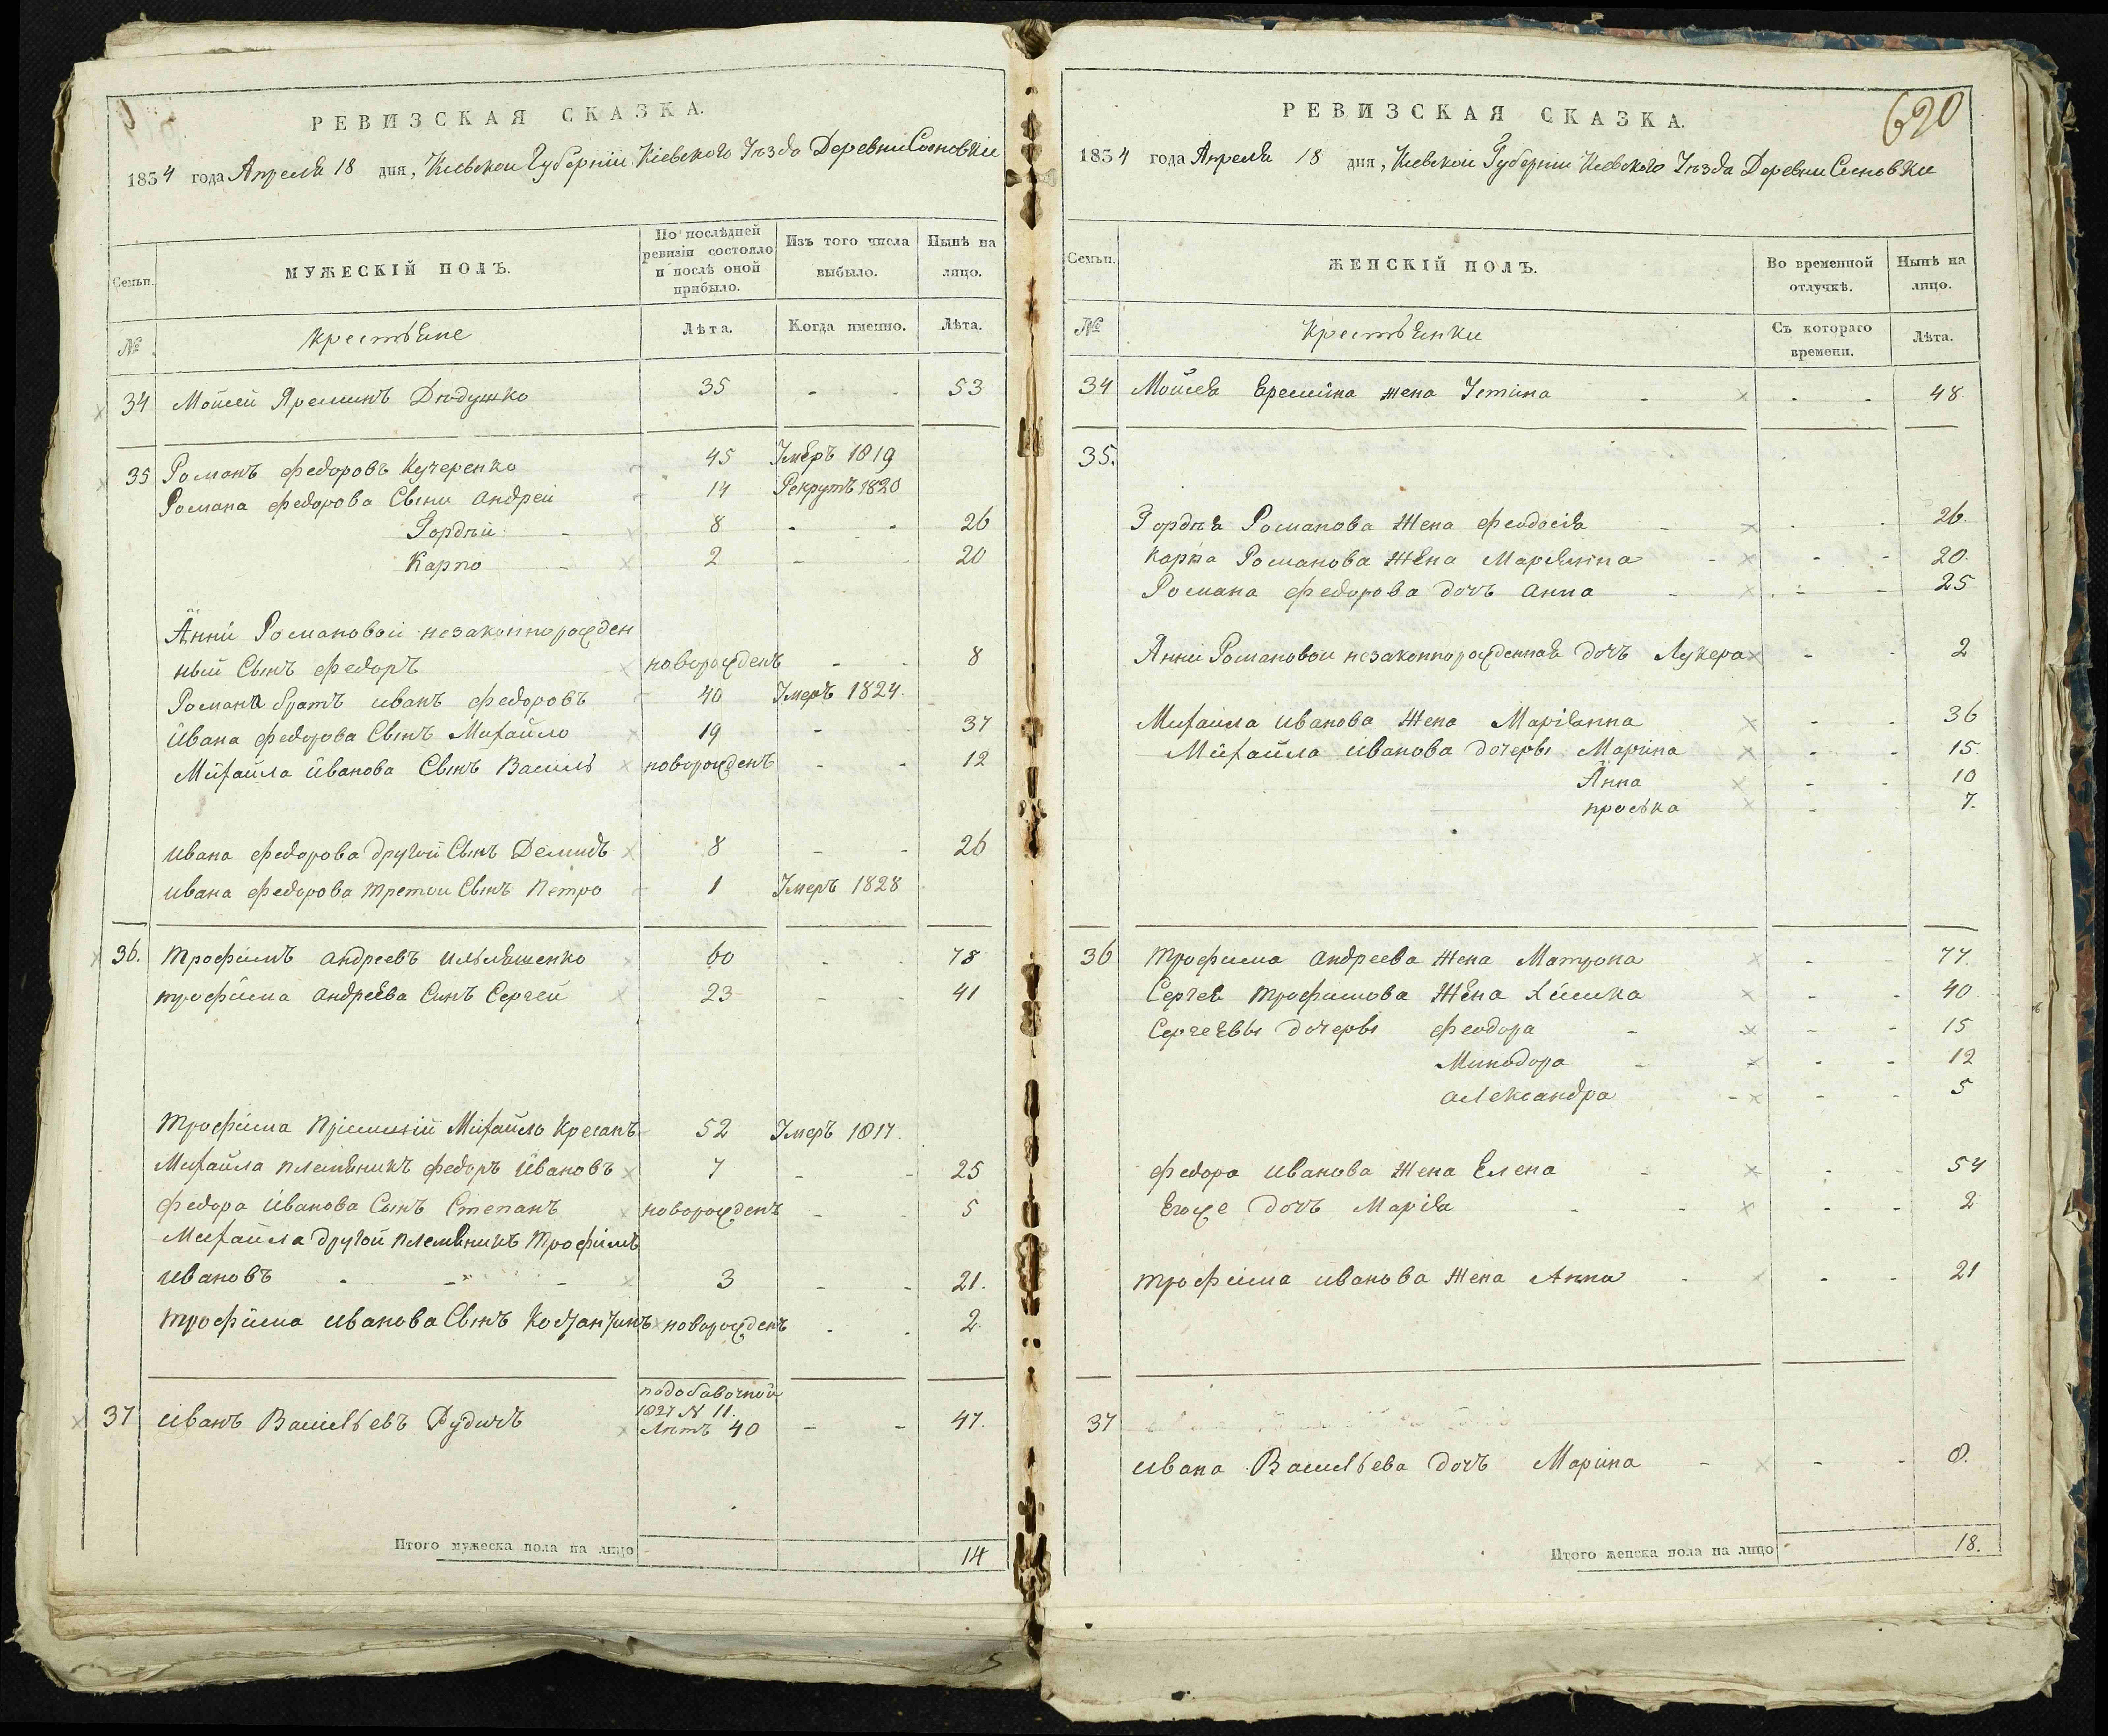 РЕВИЗСКАЯ СКАЗКА.
1834 года Апреля 18 дня, Киевской Губернїи Кіевского Уѣзда Деревни Сосновки
Семьи.
МУЖЕСКІЙ ПОЛЪ.
По послѣдней ревизіи состояло и послѣ оной прибыло.
Изъ того числа выбыло.
Нынѣ на лицо.
№
крестьяне
Лѣта.
Когда именно.
Лѣта.
34 Мойсей Яреминъ Дѣдушко 35 - - 53
35 Романъ федоровъ Кучеренко 45 Умеръ 1819
Романа федорова Сыни андрей 14 Рекрутъ 1820
Гордѣй - 8 - - 26
Карпо - 2 - - 20
Анни Романовой незаконнорожден
ный Сынъ федоръ новорожденъ - - 8
Романа братъ иванъ федоровъ 40 Умеръ 1824.
Ивана федорова Сынъ Михайло 19 - - 37
Михайла иванова Сынъ Василь новорожденъ - - 12
ивана федорова другой Сынъ Демидъ 8 - - 26
ивана федорова третои Сынъ Петро 1 Умеръ 1828
36. трофимъ андреевъ ильяшенко 60 - - 78
трофима андреева Синъ Сергей 23 - - 41
трофима Пріимший Михайло 52 Умеръ 1817.
Михайла племяникъ федоръ ивановъ 7 - - 25
федора иванова Сынъ Степанъ новорожденъ - - 5
Михайла другой племяникъ трофимъ
ивановъ - - - 3 - - 21.
трофима иванова Сынъ Костантинъ новорожденъ - - 2
37 иванъ Васильевъ Рудичъ
подобавочной
1827 N 11.
Лѣтъ 40 - - 47.
Итого мужеска пола на лицо 14
620
РЕВИЗСКАЯ СКАЗКА.
1834 года Апреля 18 дня, Киевской Губернии Киевского Уѣзда Деревни Сосновки
Семьи.
ЖЕНСКІЙ ПОЛЪ.
Во временной отлучкѣ.
Нынѣ на лицо.
№
Крестьянки
Съ котораго времени.
Лѣта.
34 Мойсея Еремина жена Устина - - - 48.
35.
Гордѣя Романова жена феодосія - - - 26.
карпа Романова жена Маріянна - - - 20.
Романа федорова дочъ анна - - - 25
Анни Романовои незаконнорожденная дочъ Лукера - - 2
Михаила иванова жена Маріянна - - 36
Михайла иванова дочеры Марина - - 15.
Анна - - 10
проська - - 7.
36 трофима андреева жена Матрона - - 77
Сергея трофимова жена Химка - - 40
Сергеевы дочеры феодора - - - 15
Минодора - - - 12
александра - - - 5
федора иванова жена Елена - - - 54
Егоже дочъ Марія - - - - 2
трофима иванова жена Анна - - - 21
37
ивана Васильева дочъ Марина - - - 8.
Итого женска пола на лицо 18.